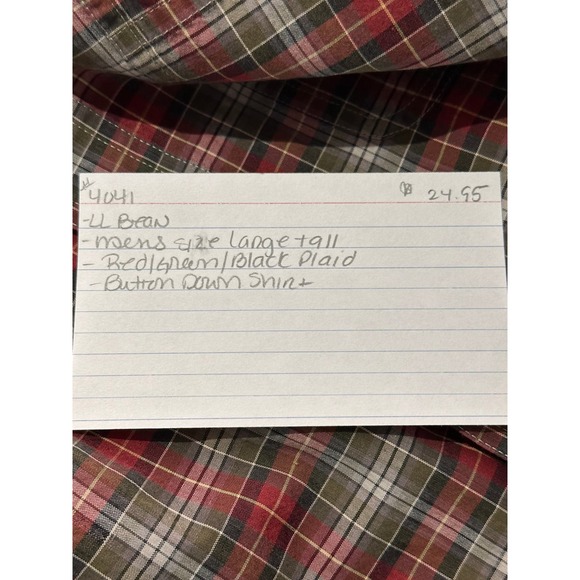 # 4041 $ 24.95
- LL Bean
- mens size Large tall
- Red/Green/Black Plaid
- Button Down Shirt